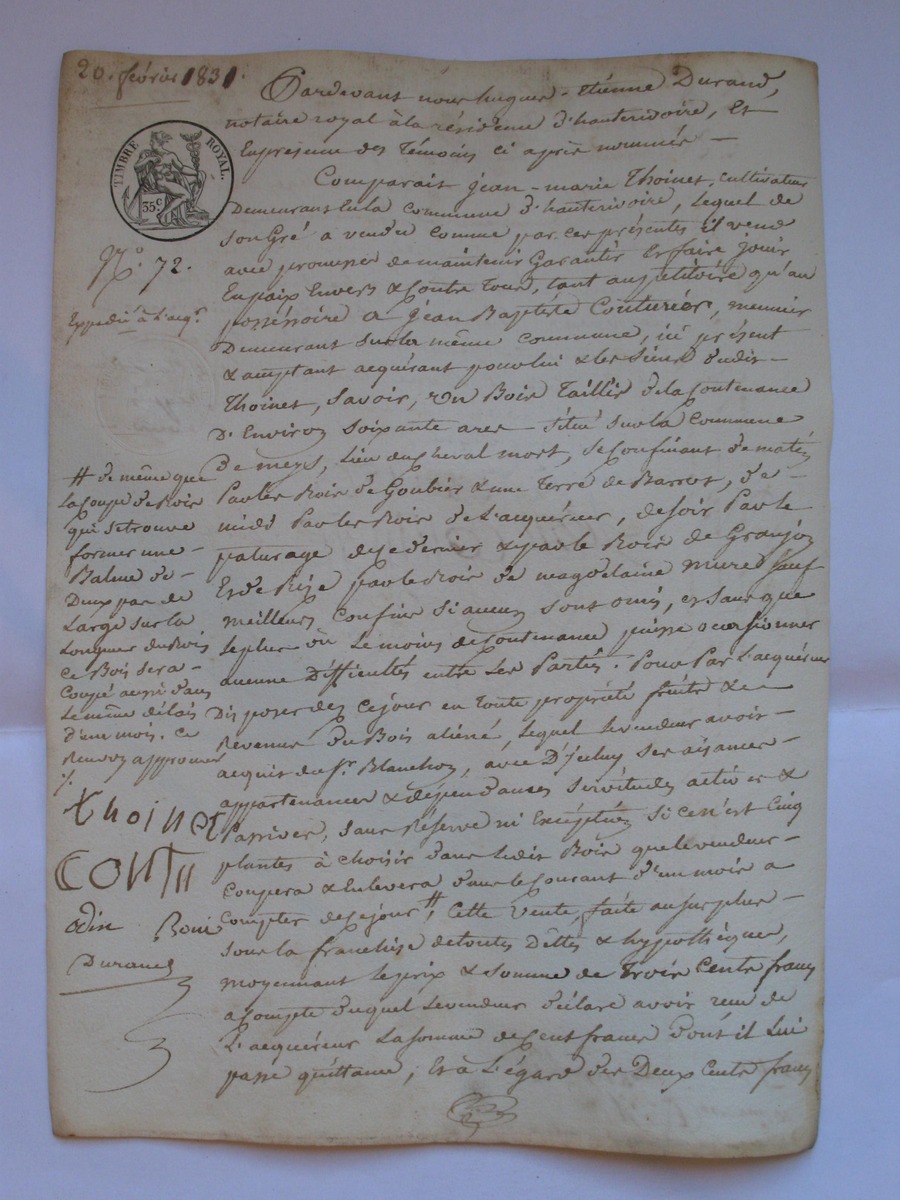 20. février 1831.
TIMBRE ROYAL.
35c
No. 72.
Expédié à l'acqr
Pardevant nous hugues-Étienne Durand,
notaire royal à la résidence d'hauterivoire, Et
En présence des Témoins ci après nommés —
Comparait Jean-marie Thoinet, cultivateur
Demeurant En la commune d'hauterivoire, Lequel de
son Gré a vendu comme par ces présentes il vend
avec promesse de maintenir Garantir Et faire Jouir
En paix Envers & Contre Tous, tant au pétitoire qu'au
possessoire a Jean Baptiste Couturier, meunier
Demeurant sur la même commune, ici présent
& acceptant acquérant pour lui & les siens dudit —
Thoinet, Savoir, un Bois Taillis de la Contenance
D'Environ Soixante ares — situé sur la Commune
de meys, Lieu du cheval mort, se Confinant de matin
Par les Bois de Goubier & une Terre de Barrot, de —
midi Par les Bois de l'acquéreur, de soir Par le
paturage de ce dernier & par le Bois de Granjon
Et de Bize par le Bois de magdelaine mure Sauf
meilleurs Confins si aucuns sont omis, et sans que
le plus ou Le moins de Contenance puisse occasionner
aucune Difficultés entre Les Parties. Pour Par L'acquéreur
Disposer dès ce jour en toute propriété fruits & —
Revenus du Bois aliéné, Lequel Le vendeur avoit —
acquis du Sr. Blanchon, avec D'Jcelui Ses aisances —
appartenances & dépendances Servitudes actives &
Passives, Sans Réserve ni Exception Si ce n'est Cinq
plantes à choisir dans Ledit Bois que le vendeur —
Coupera & Enlevera dans le Courant d'un mois a
Compter de ce jour #, Cette vente, faite au surplus —
Sous la franchise de toutes Dêttes & hypothèques,
moyennant le prix & Somme de Trois Cents francs
a Compte duquel Le vendeur déclare avoir reçu de
L'acquéreur La Somme de Cent francs dont il Lui
passe quittance, Et à L'égard des Deux Cents francs
# de même que
la Coupe de Bois
qui se trouve
former une —
Balme de
Deux pas de
Large sur la
Longueur du Bois
ce Bois sera —
Coupé aussi dans
Le même délais
d'un mois. ce
Renvoy approuvé
thoinet
COUTU
Odin Boin
Durand